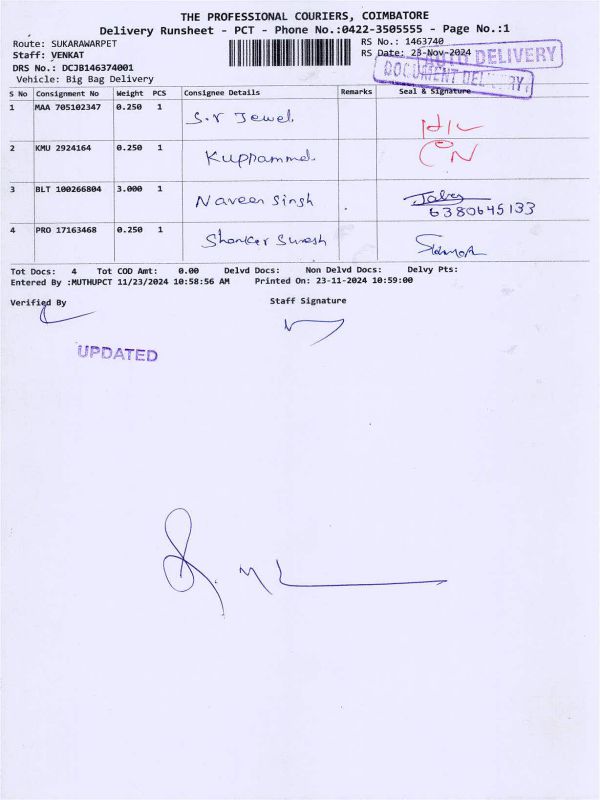 THE PROFESSIONAL COURIERS, COIMBATORE
Delivery Runsheet - PCT - Phone No.:0422-3505555 - Page No.:1
Route: SUKARAWARPET RS No.: 1463740
Staff: VENKAT RS Date: 23-Nov-2024
DRS No.: DCJB146374001
Vehicle: Big Bag Delivery
AUTO DELIVERY
DOCUMENT DELIVERY
S No Consignment No Weight PCS Consignee Details Remarks Seal & Signature
1 MAA 705102347 0.250 1 S.r Jewel
2 KMU 2924164 0.250 1 Kuppammal
3 BLT 100266804 3.000 1 Naveen Singh
6380645133
4 PRO 17163468 0.250 1 Shankar Suresh
Tot Docs: 4 Tot COD Amt: 0.00 Delvd Docs: Non Delvd Docs: Delvy Pts:
Entered By :MUTHUPCT 11/23/2024 10:58:56 AM Printed On: 23-11-2024 10:59:00
Verified By Staff Signature
UPDATED